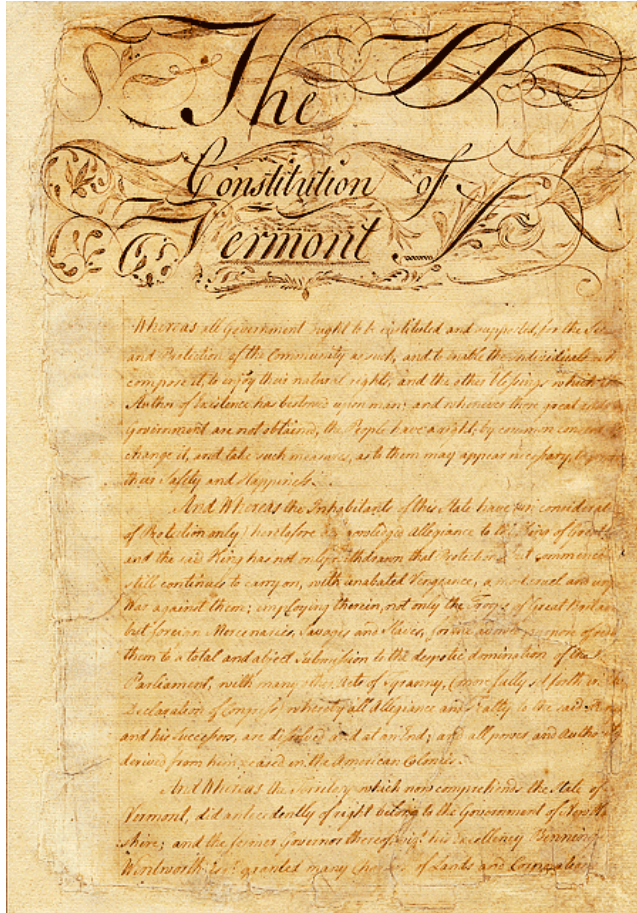 The
Constitution of
Vermont
Whereas all Government ought to be instituted and supported, for the
and Protection of the Community as such, and to enable the individuals
compose it, to enjoy their natural rights, and the other blessings which
Author of Existence has bestowed upon man; and whenever those great
Government are not obtained, the People have a right, by common
change it, and take such measures, as to them may appear necessary, to
their Safety and Happiness.
And Whereas the Inhabitants of this State have
of Protection only) heretofore Allegiance to the King of
and the said King has not only withdrawn that Protection, but
still continues to carry on, with unabated Vengeance, a most cruel and
War against them; employing therein, not only the Troops of Great
but foreign Mercenaries, Savages and Slaves, for the avowed
them to a total and abject Submission to the despotic domination of the
Parliament, with many other Acts of Tyranny, (more fully set forth in
Declaration of Congress) whereby all Allegiance and Fealty to the said
and his Successors, are dissolved and at an End; and all power and
derived from him ceased in the American Colonies.
And Whereas the Territory which now comprehends the State of
Vermont, did antecedently of right belong to the Government of New
shire; and the former Governor thereof, his Excellency
Wentworth granted many of Lands and